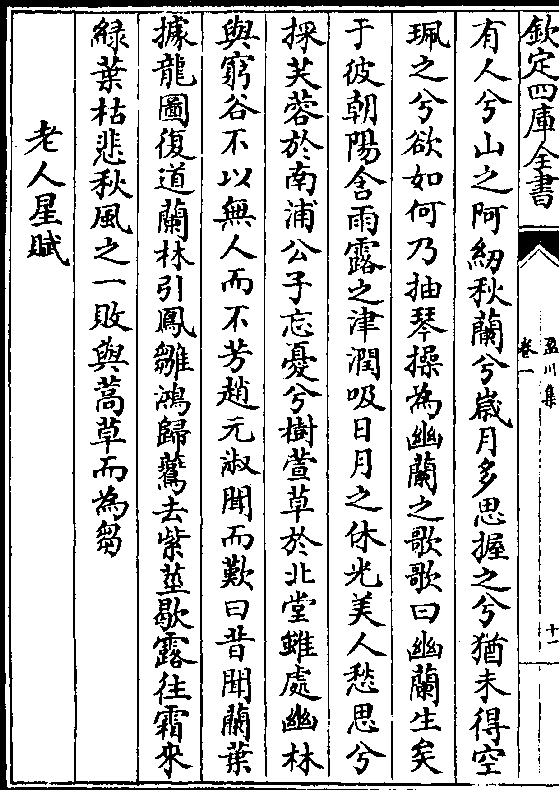 欽定四庫全書
盈川集
卷一
十一
有人兮山之阿紉秋蘭兮歲月多思握之兮猶未得空
珮之兮欲如何乃抽琴操為幽蘭之歌歌曰幽蘭生矣
于彼朝陽含雨露之津潤吸日月之休光美人愁思兮
採芙蓉於南浦公子忘憂兮樹萱草於北堂雖處幽林
與窮谷不以無人而不芳趙元淑聞而歎曰昔聞蘭葉
據龍圖復道蘭林引鳳雛鴻歸鷰去紫莖歇露往霜來
綠葉枯悲秋風之一敗與蒿草而為芻
老人星賦